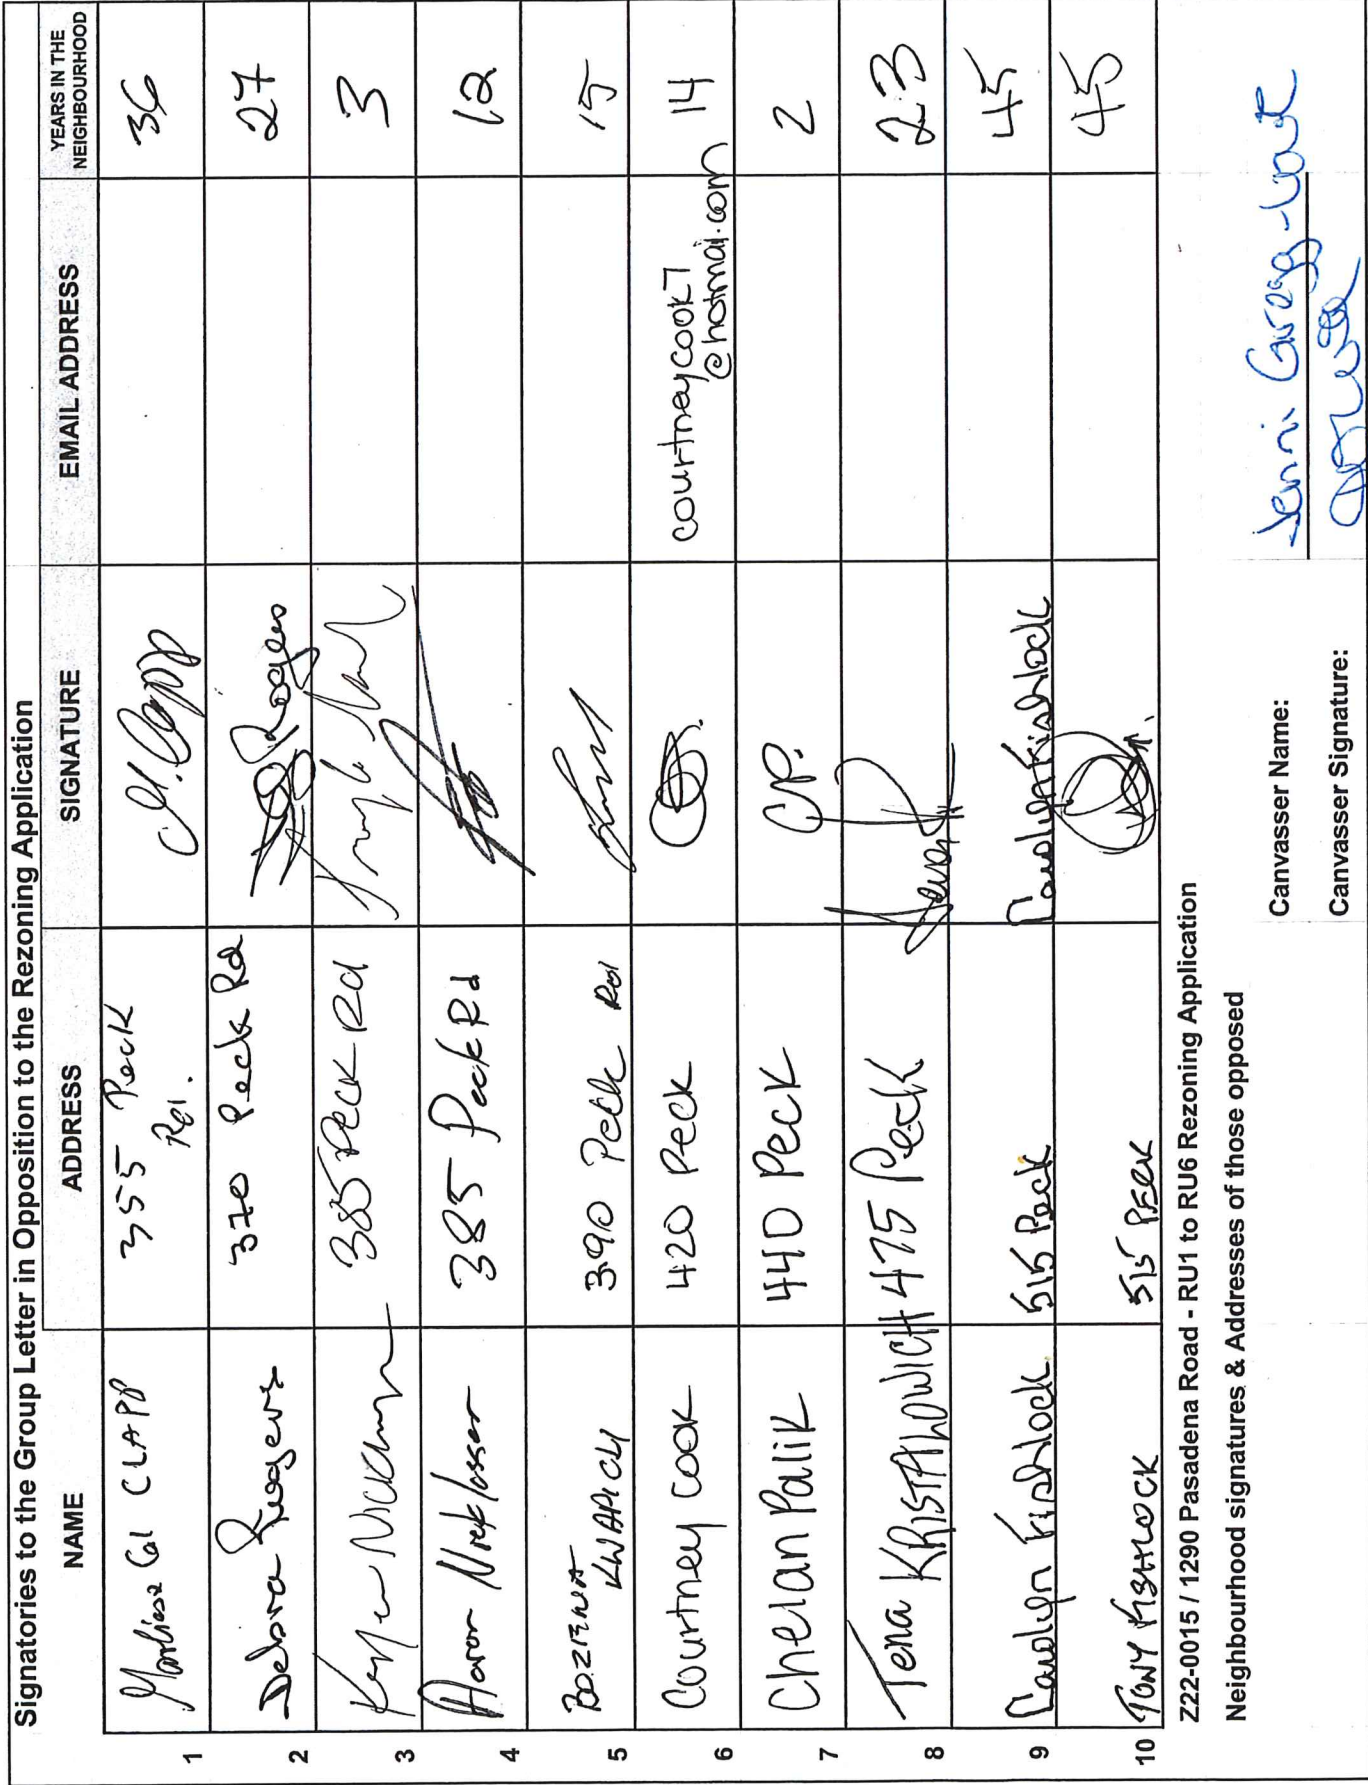 Signatories to the Group Letter in Opposition to the Rezoning Application
NAME ADDRESS SIGNATURE EMAIL ADDRESS YEARS IN THE
NEIGHBOURHOOD
1 CLAPP 355 Peck M. Clapp 36
Rd.
2 Debra Rogers 370 Peck Rd Rogers 27
3 385 Peck Rd 3
4 Aaron 385 Peck Rd 12
5 BOZENA 390 Peck Rd 15
KWAPICH
6 Courtney Cook 420 Peck courtneycook7 14
@hotmai.com
7 Chelan Palik 440 Peck CP. 2
8 Tena KRISTALOWICH 475 Peck 23
9 Carolyn Fishlock 515 Peck Carolyn Fishlock 45
10 TONY FISHLOCK 515 PECK 45
Z22-0015 / 1290 Pasadena Road - RU1 to RU6 Rezoning Application
Neighbourhood signatures & Addresses of those opposed
Canvasser Name: Jenni Gregg-
Canvasser Signature: